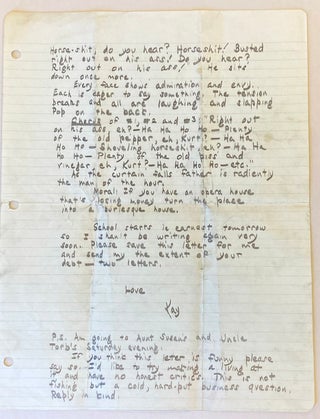 Horse-shit, do you hear? Horseshit! Busted
right out on his ass! Do you hear?
Right out on his ass! He sits
down once more.
Every face shows admiration and envy.
Each is eager to say something. The tension
breaks and all are laughing and clapping
Pop on the back.
Chorus of #1, #2 and #3: "Right out
on his ass, eh?—Ha Ha Ho Ho—Plenty
of the old pepper, eh, Kurt?—Ha Ha
Ho Ho—Shoveling horseshit, eh?—Ha Ha
Ho Ho—Plenty of the old piss and
vinegar, eh, Kurt?—Ha Ha Ho—etc."
As the curtain falls father is radiently
the man of the hour.
Moral: If you have an opera house
that's losing money turn the place
into a burlesque house.
School starts in earnest tomorrow
so I shan't be writing again very
soon. Please save this letter for me
and send my the extent of your
debt—two letters.
Love
Kay
P.S. Am going to Aunt and Uncle
Saturday evening.
If you think this letter is funny please
say so. I'd like to try making a living at
it and have no honest critics. This is not
fishing but a cold, hard-put business question.
Reply in kind.